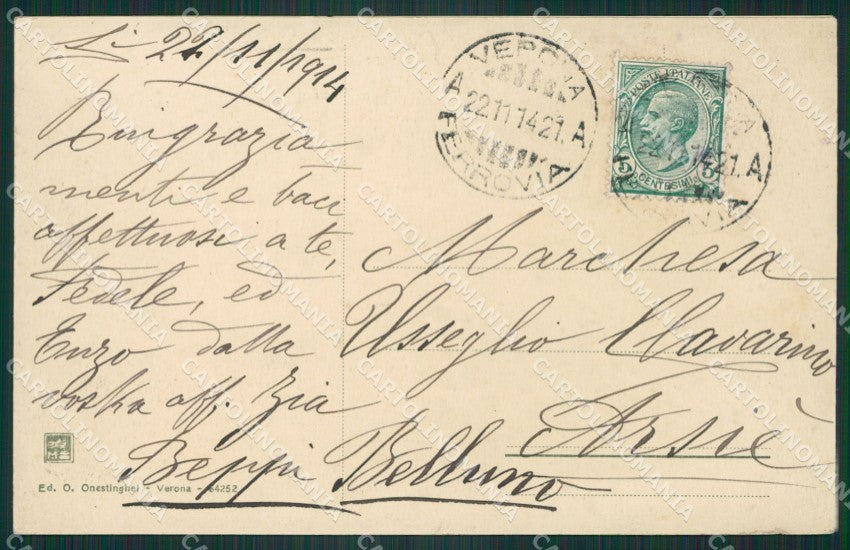 Lì 22/11/1914
Ringrazia
menti e baci
affettuosi a te,
Fedele, ed
Enzo dalla
vostra aff. Zia
Beppi
Ed. O. Onestinghel - Verona - 54252
VERONA
22.11.14 21. A
A FERROVIA
POSTE ITALIANE
5 CENTESIMI 5
14 21. A
Marchesa
Usseglio Clavarino
Arsiè
Belluno
CARTOLINOMANIA